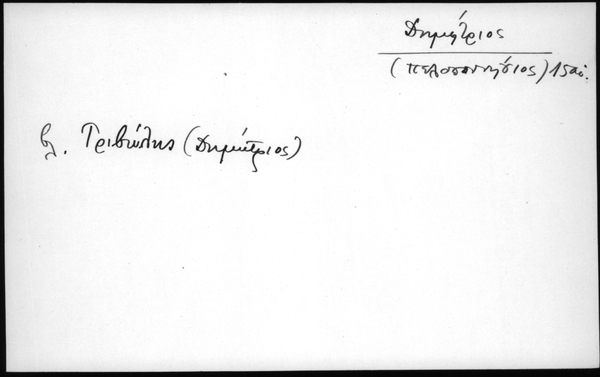 Δημήτριος
(πελοποννήσιος) 15 αι.
βλ. Τριβώλης (Δημήτριος)